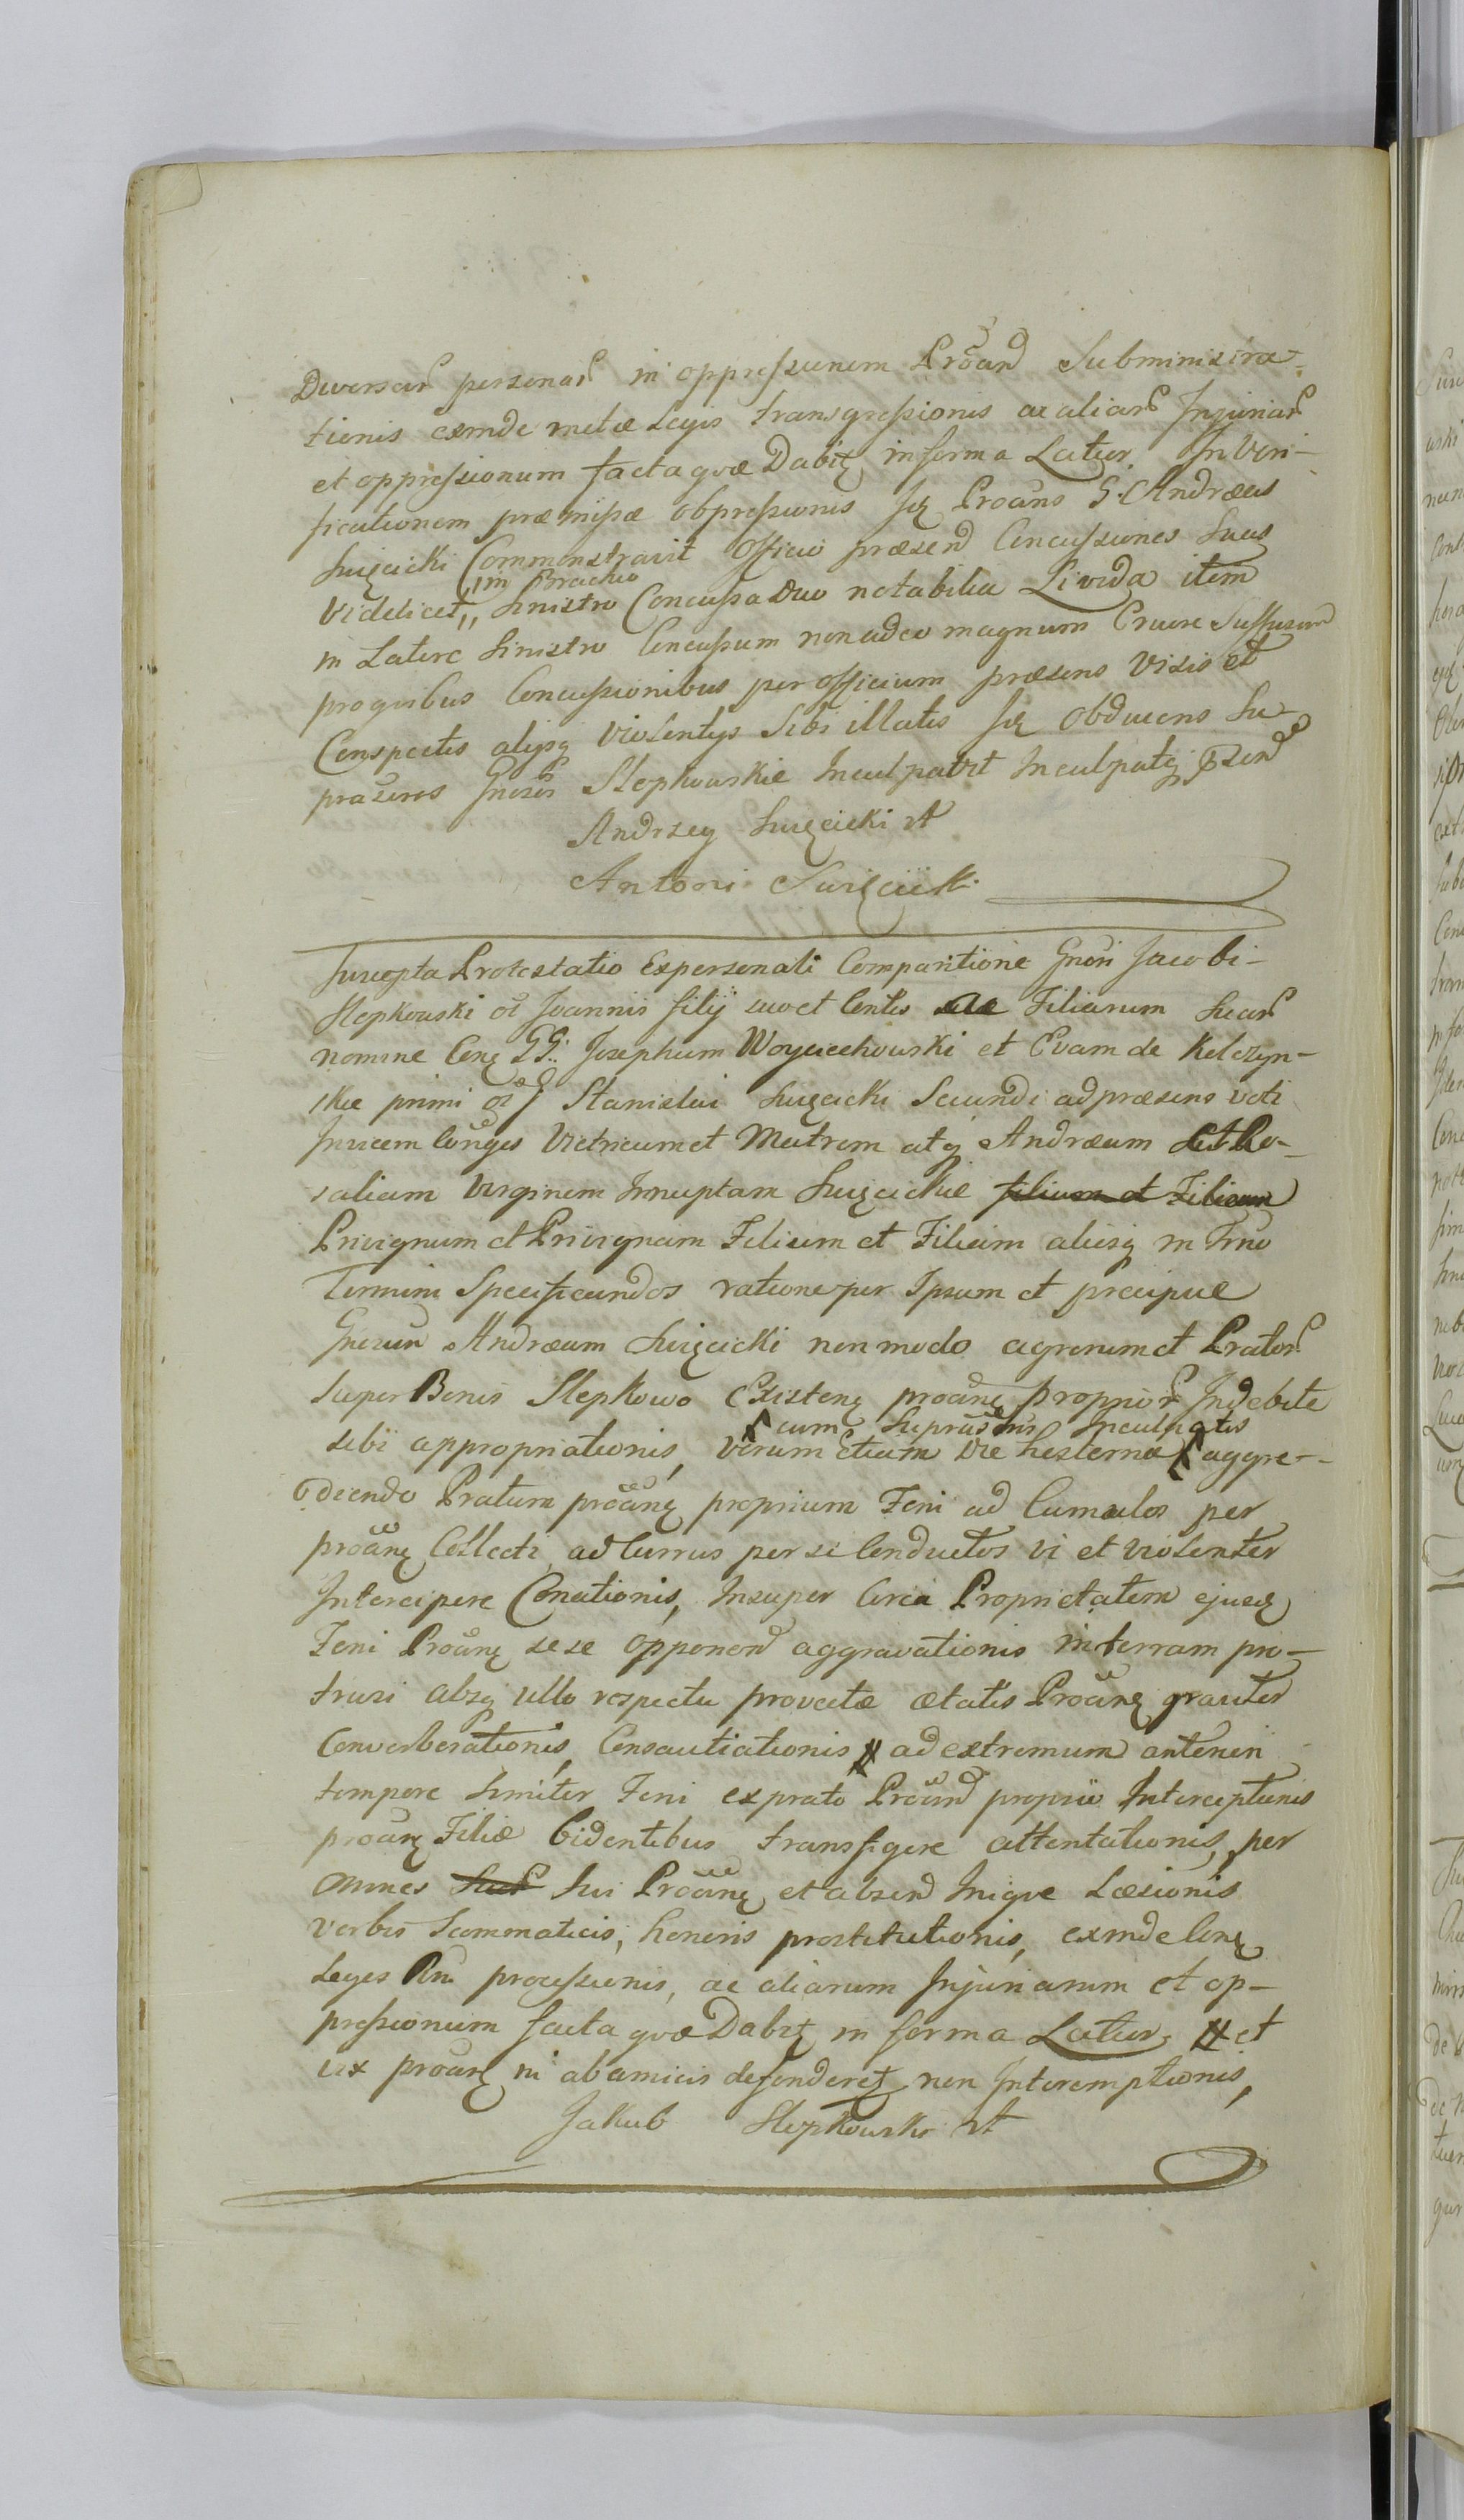 Diversar personar in oppressionem Proãnd Subministra-
tionis exinde metæ Legis transgressionis ac aliar Injuriar
et oppressionum facta qvæ Dabit̃ in forma Latior. In Veri-
ficationem præmissæ obpressionis Jd Proãns G. Andræas
Swięcicki Commonstravit Officio præsend Concussiones Suas
in Brachio
Videlicet,, Sinistro Concussa Duo notabilia Livida item
in Latere Sinistro Concussum non adeo magnum Cruore Suffusum
pro qvibus Concussionibus per officium præsens Visis et
Conspectis alijsq̃ Violentijs Sibi illatis Jd obducens Su-
prãscros Gnosos Slepkowskie Inculpavit Inculpatq̃ p̃send
Andrzey Swięcicki A
Antoni Swięcick
Suscepta Protestatio Ex personali Comparitione Gnosi Jacobi
Slepkowski ol Joannis filij suo et Contis ac Filiarum Suar
nomine Conq̃ GG. Josephum Woyciechowski et Evam de Kelczyn-
skie primi ol g Stanislai Swięcicki Secundi ad præsens voti
Invicem Conges Vitricum et Matrem atq̃ Andræam et Ro-
saliam Virginem Innuptam Swięcickie filium et Filiam
Privignum et Privignam Filium et Filiam aliosq̃ in Trno
Termini Specificandos ratione per Ipsum et præcipue
Gnosum Andræam Swięcicki non modo agrorum et Prator
super Bonis Slepkowo Existenq̃ proãnq̃ proprior Indebite
cum Suprãsscris Inculpatis
sibi appropriationis, verum Etiam die hesterna aggre-
diendo Pratum proãnq̃ proprium Feni ad Cumulos per
proãnq̃ Collecti ad Currus per se Conductos vi et violenter
Intercipere Conationis, Insuper Circa Proprietatem ejusd
Feni Proãnq̃ sese opponend aggravationis in terram pro-
trusi absq̃ ullo respectu provectæ ætatis Proãnq̃ graviter
Converberationis, Consautiationis # ad extremum anteneri
tempore Simiter Feni ex prato Proãnd proprio Interceptionis
proãnq̃ Filiæ bidentibus transfigere attentationis, per
omnes Suos Sui Proãnq̃ et absend Inique Læsionis
verbis Scommaticis, honoris prostitutionis, exinde Conq̃
Leges Rni processionis, ac aliarum Injuriarum et op-
pressionum facta qvæ Dabit̃ in forma Latior; # et
vix proãnq̃ ni ab amicis defenderet̃ non Interemptionis,
Jakub Slepkowski A